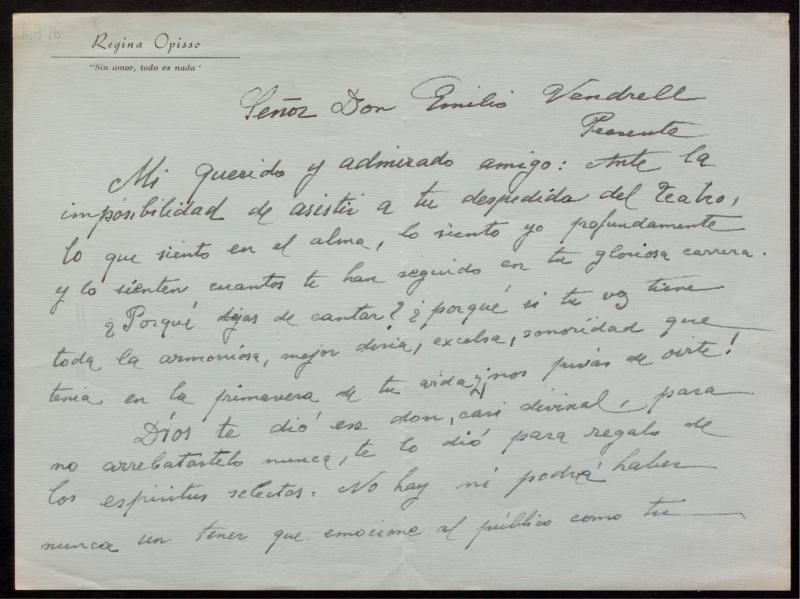 Regina Opisso
"Sin amor, todo es nada"
Señor Don Emilio Vendrell
Presente
Mi querido y admirado amigo: Ante la
imposibilidad de asistir a tu despedida del Teatro,
lo que siento en el alma, lo siento yo profundamente
y lo sienten cuantos te han seguido en tu gloriosa carrera.
¿Porqué dejas de cantar? ¿porqué si tu voz tiene
toda la armoniosa, mejor diria, excelsa, sonoridad que
tenia en la primavera de tu vida, nos privas de oirte!
Dios te dió ese don, casi divinal, para
no arrebatartelo nunca, te lo dió para regalo de
los espiritus selectos. No hay ni podrá haber
nunca un tenor que emocione al público como tu